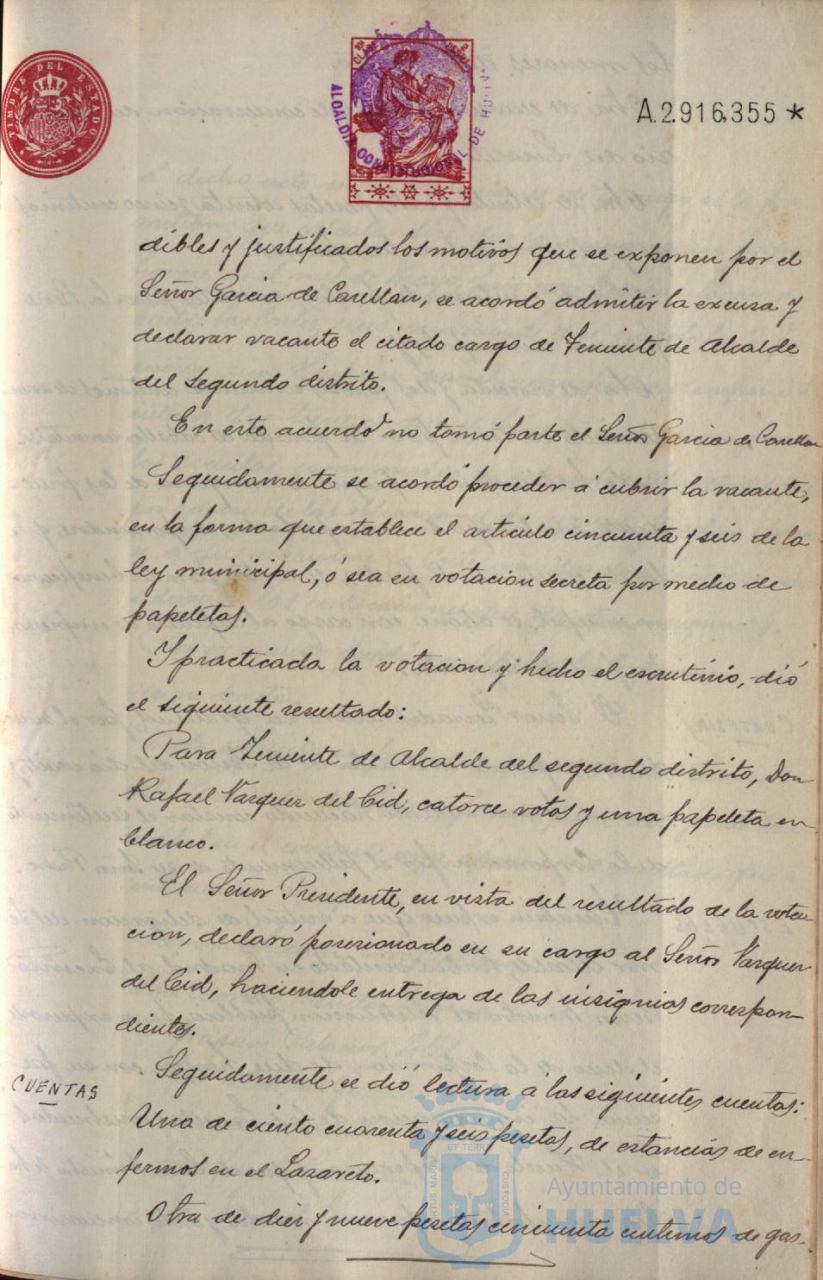 TIMBRE DEL ESTADO
ALCALDIA CONSTITUCIONAL DE HUELVA
A.2.916.355 *
dibles y justificados los motivos que se exponen por el
Señor Garcia de Carellan, se acordó admitir la excusa y
declarar vacante el citado cargo de Teniente de Alcalde
del segundo distrito.
En este acuerdo no tomó parte el Señor Garcia de Carellan
Seguidamente se acordó proceder á cubrir la vacante,
en la forma que establece el artículo cincuenta y seis de la
ley municipal, ó sea en votacion secreta por medio de
papeletas.
Y practicada la votacion y hecho el escrutinio, dió
el siguiente resultado:
Para Teniente de Alcalde del segundo distrito, Don
Rafael Vazquez del Cid, catorce votos y una papeleta en
blanco.
El Señor Presidente, en vista del resultado de la vota-
cion, declaró posesionado en su cargo al Señor Vazquez
del Cid, haciendole entrega de las insignias correspon-
dientes.
CUENTAS
Seguidamente se dió lectura á las siguientes cuentas:
Una de ciento cuarenta y seis pesetas, de estancias de en-
fermos en el Lazareto.
Otra de diez y nueve pesetas cincuenta centimos de gas-
Ayuntamiento de
HUELVA